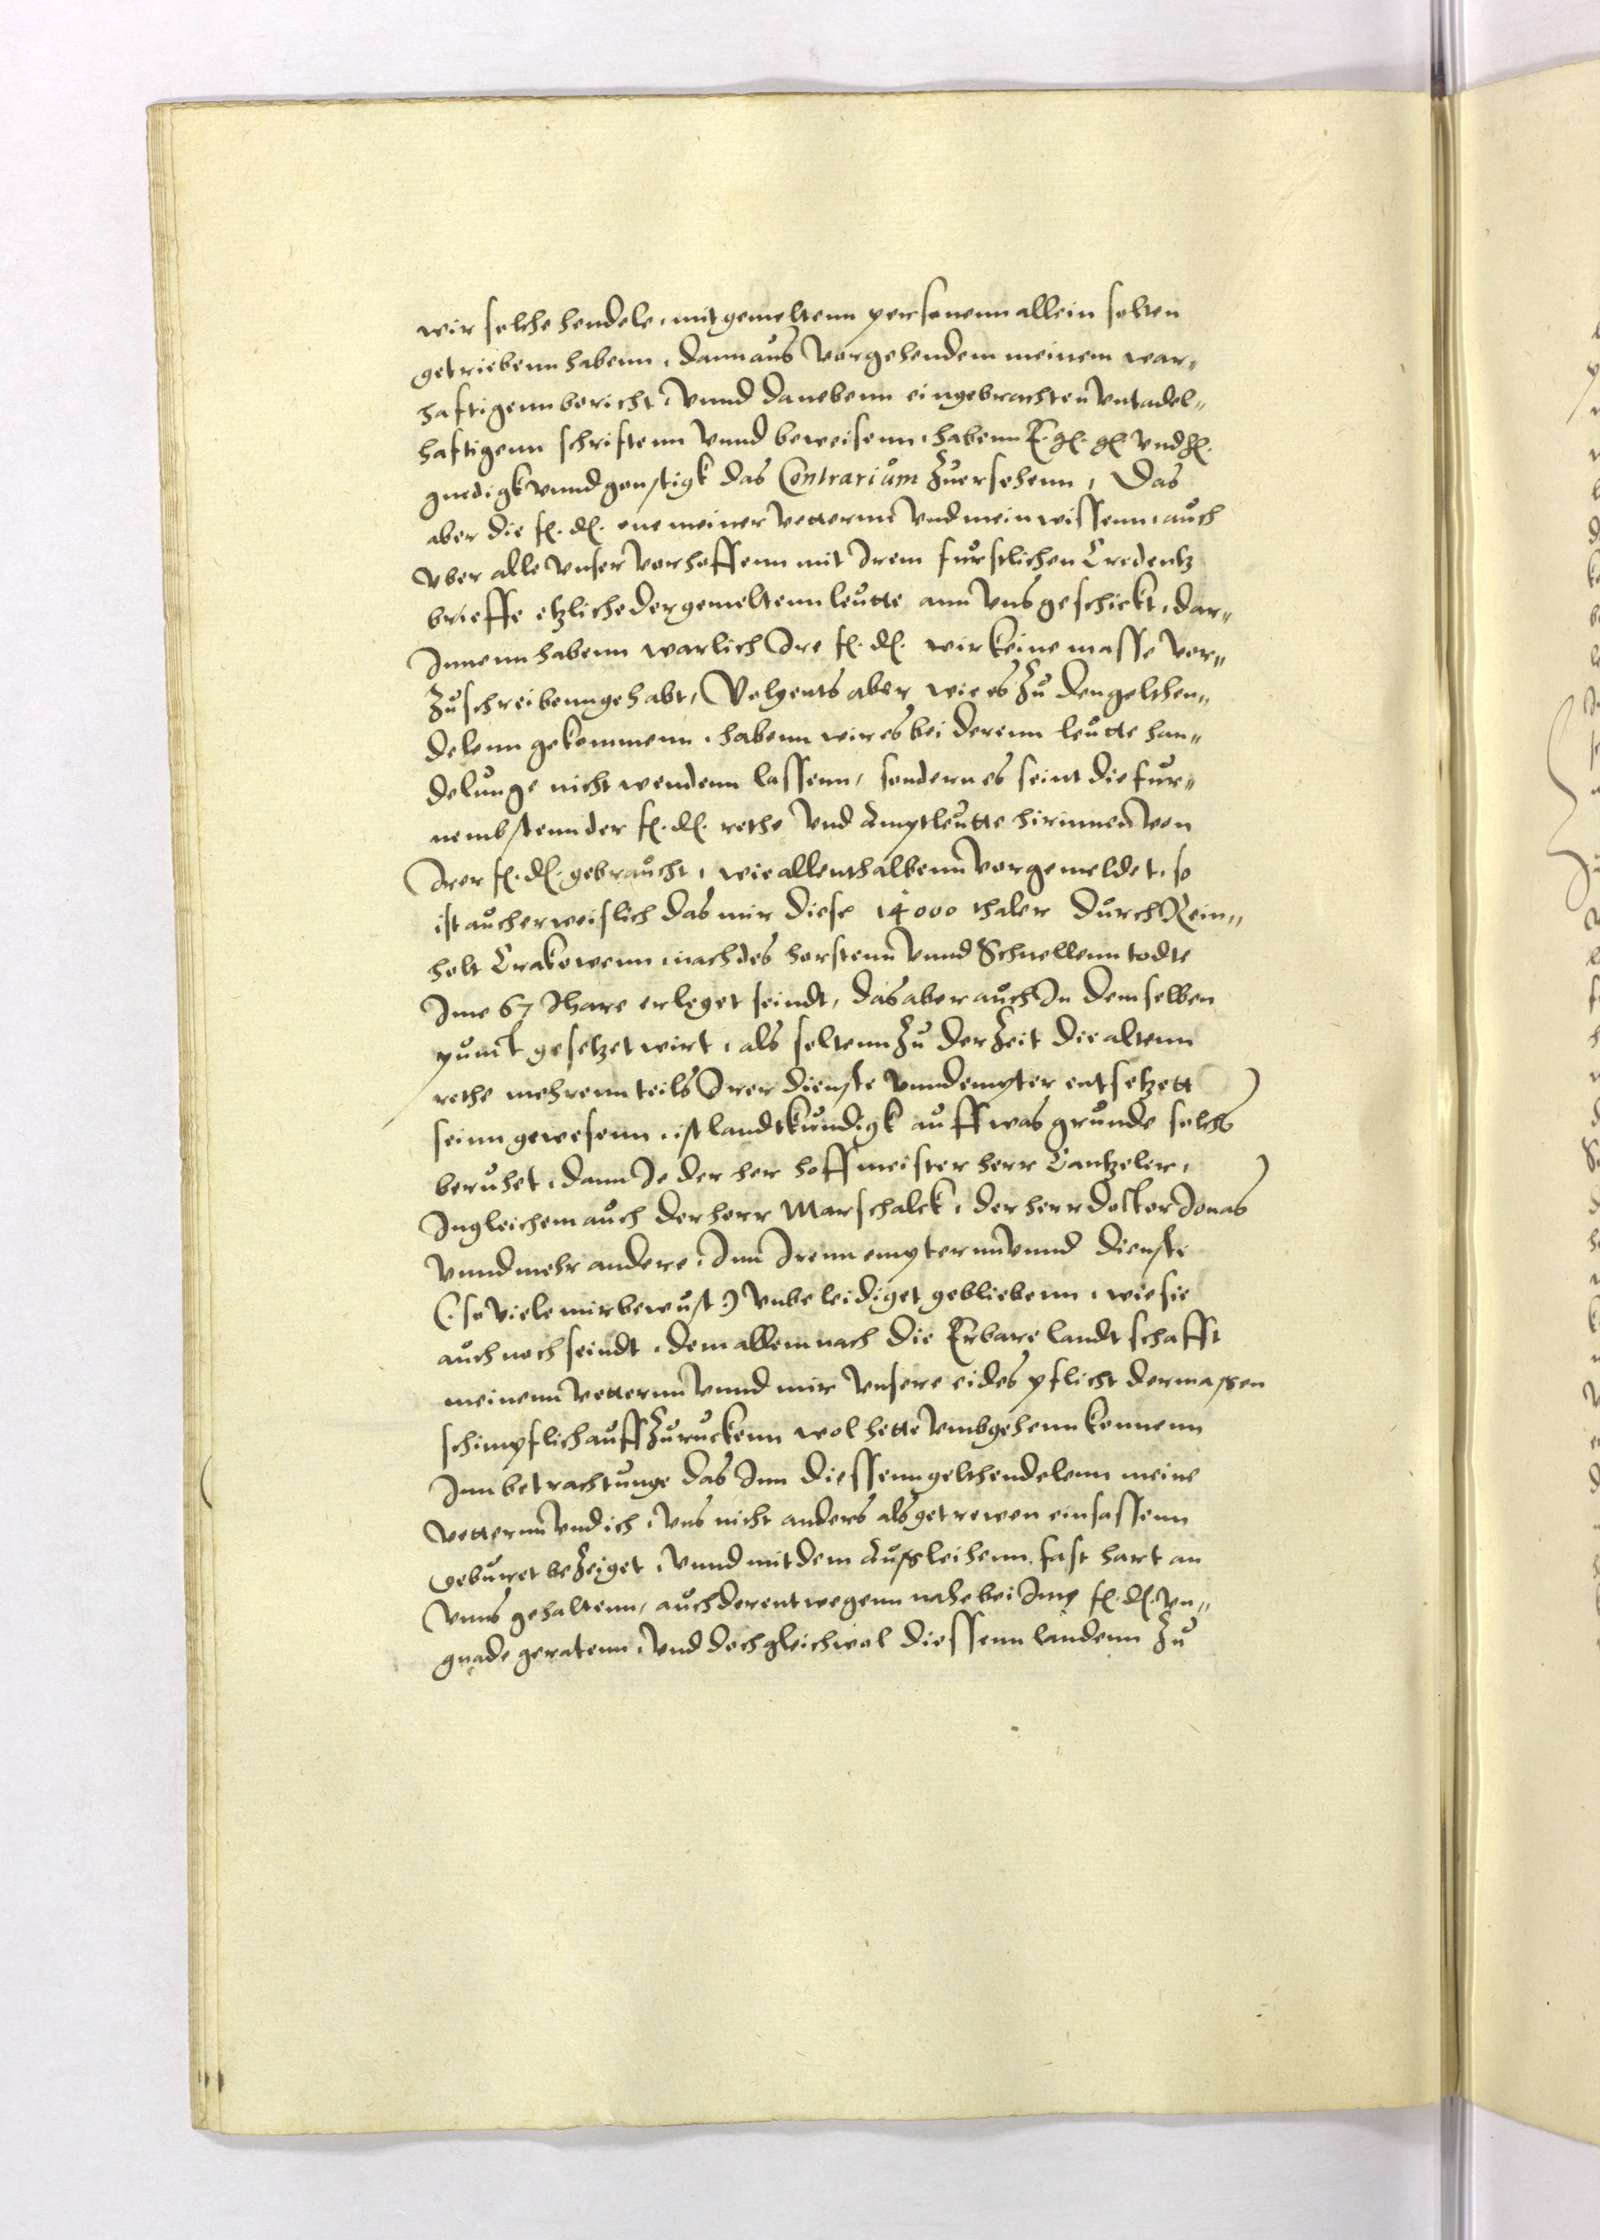 wir solche hendele, mit gemeltenn personenn allein solten
getriebenn habenn, dann aus vorgehendem meinem war„
haftigenn bericht, vnnd danebenn eingebrachten vntadel„
haftigenn schriftenn vnnd beweisenn, habenn E. g. g. vnd h.
gnedigk vnnd gonstigk das Contrarium Zuersehenn, Das
aber die f. d. one meiner vetternn vnd mein wissenn, auch
vber alle vnser vorhoffenn mit Irem furstlichen Credentz
brieffe etzliche der gemeltenn leutte ann vns geschickt, dar„
Innenn habenn warlich Ire f. d. wir keine masse vor„
Zuschreibenn gehabt, Volgents aber wie es Zu den gelthen„
delenn gekommenn, habenn wir es bei derenn leutte han„
delunge nicht wendenn lassenn, sondern es seint die fur„
nembstenn der f. d. rethe vnd Amptleutte hirinnen von
Irer f. d. gebraucht, wie allenthalbenn vorgemeldet, so
ist auch erweislich das mir diese 14000 thaler durch Rein„
holt Crakowenn, nach des horstenn vnnd Schnellenn todte
Ime 67 Ihare erleget seindt, das aber auch In dem selben
punct gesetzet wirt, als soltenn Zu der Zeit die altenn
rethe mehrenn teils Irer dienste vnnd empter entsetzett
seinn gewesenn, ist landtkundigk auff was grunde solchs
beruhet, dann Je der her hoffmeister herr Cantzeler,
Ingleichem auch der herr Marschalck, der herr doktor Jonas
vnnd mehr andere, Inn Irenn empternn vnnd dienste
(: so viele mir bewust :) vnbeleidiget gebliebenn, wie sie
auch noch seindt, dem allem nach die Erbare landtschafft
meinenn vetternn vnnd mir vnsere eides pflicht dermassen
schimpflich auff Zuruckenn wol hette vmbgehenn konnenn
Inn betrachtunge das Inn diessenn gelthendelenn meine
vetternn vnd ich, vns nicht anders als getrewen einsassenn
geburet beZeiget, vnnd mit dem Ausleihenn, fast hart an
vnns gehaltenn, auch derentwegenn nahe bei f. d. vn„
gnade geratenn, vnd doch gleichwol diessenn landenn Zu